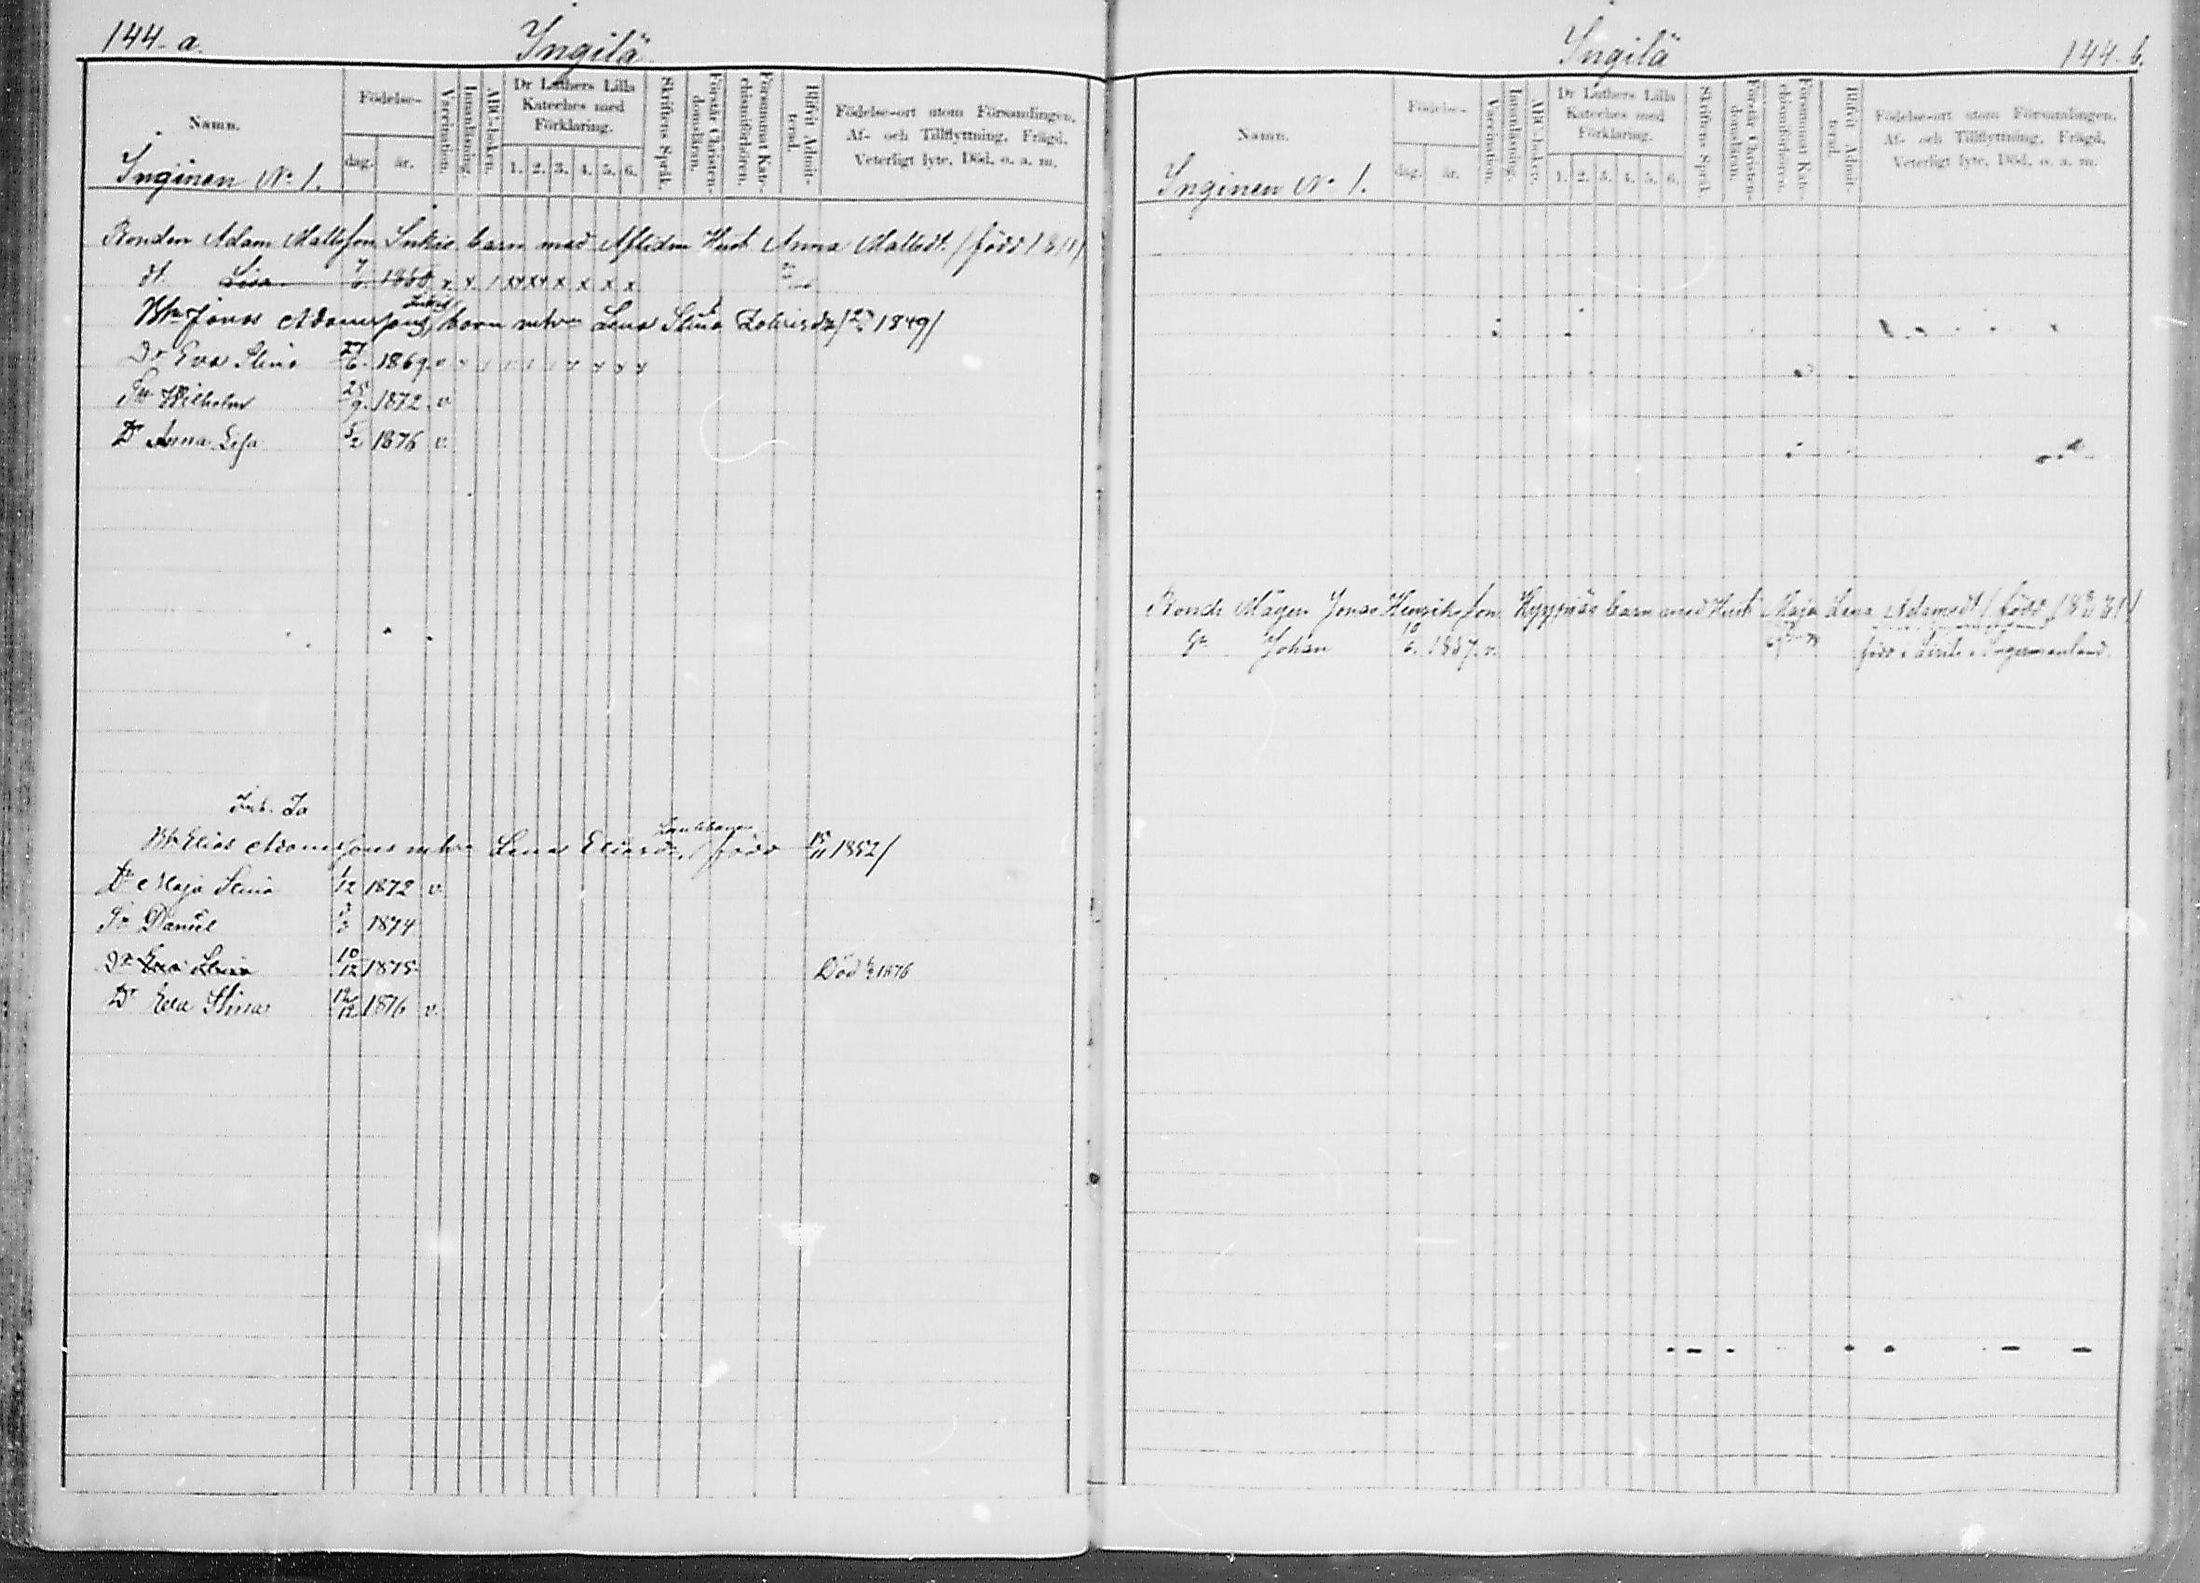 144. a.
Ingilä
Namn.
Födelse-
dag.
år.
Vaccination.
Innanläsning.
ABC-boken.
Dr Luthers Lilla
Kateches med
Förklaring.
1. 2. 3. 4. 5. 6.
Skriftens Språk.
Förstår Christen-
domsläran.
Försummat Kate-
chismiförhören.
Blifvit Admit-
terad.
Födelse-ort utom Församlingen.
Af- och Tillflyttning. Frägd.
Veterligt lyte. Död. o. a. m.
Inginen No 1.
Bonden Adam Mattsson barn med Aflidne Hust. Anna Mattsdt. (född 1811)
dt. Lisa 7/6. 1860 x x / xx xx x x x x
Jonas Adamsson barn Lena Stina 1849/
Dr Eva Stina 27/6. 1869. v
Sn Wilhelm 25/9. 1872. v
Dr Anna Lisa 5/2 1876 v.
Elias Adamsson Lena född 15/11 1852/
Dr Maja Stina 1/12 1872 v.
Sn Daniel 1874
Dr Eva 10/12 1875 Död 1876
Dr Eva Stina 12/12 1876 v.
Ingilä
144. b.
Namn.
Födelse-
dag.
år.
Vaccination.
Innanläsning.
ABC-boken.
Dr Luthers Lilla
Kateches med
Förklaring.
1. 2. 3. 4. 5. 6.
Skriftens Språk.
Förstår Christen-
domsläran.
Försummat Kate-
chismiförhören.
Blifvit Admit-
terad.
Födelse-ort utom Församlingen.
Af- och Tillflyttning. Frägd.
Veterligt lyte. Död. o. a. m.
Inginen No 1.
Bonde Mågen Jonas Henriksson barn med Hust. Maja Lena Adamsdt (född
Sn Johan 10/6. 1857. v. född i Ingermanland.